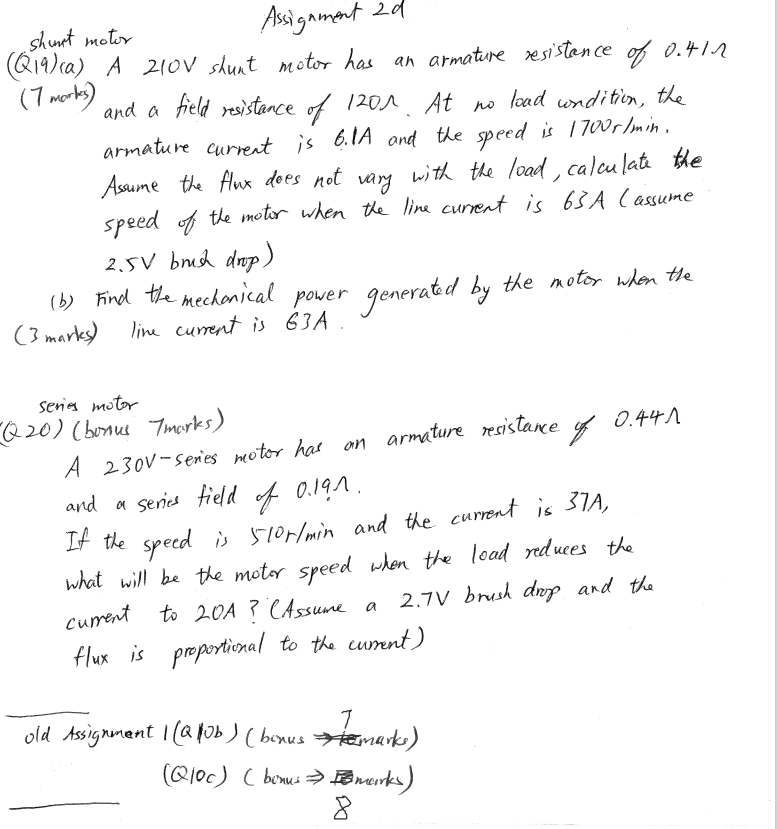 Assignment 2d
shunt motor
(Q19)(a) A 210V shunt motor has an armature resistance of 0.41Ω
(7 marks) and a field resistance of 120Ω. At no load condition, the
armature current is 6.1A and the speed is 1700r/min.
Assume the flux does not vary with the load, calculate the
speed of the motor when the line current is 63A (assume
2.5V brush drop)
(b) Find the mechanical power generated by the motor when the
(3 marks) line current is 63A.
series motor
(Q20) (bonus 7marks)
A 230V-series motor has an armature resistance of 0.44Ω
and a series field of 0.19Ω.
If the speed is 510r/min and the current is 37A,
what will be the motor speed when the load reduces the
current to 20A? (Assume a 2.7V brush drop and the
flux is proportional to the current)
7
old Assignment 1 (Q10b) (bonus ⇒ marks)
(Q10c) (bonus ⇒ marks)
8